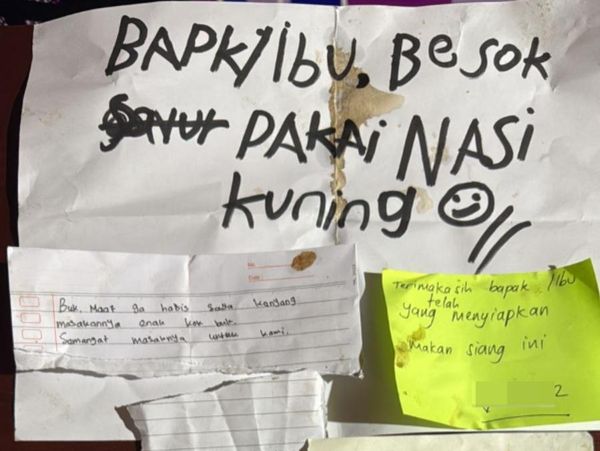 BAPK/IBU, BESOK
PAKAI NASI
kuning
No:
Date:
Buk, Maaf ga habis saya kenyang
masakannya enak kok buk.
Semangat masaknya untuk kami.
Terimakasih bapak /Ibu
telah
yang menyiapkan
makan siang ini
2